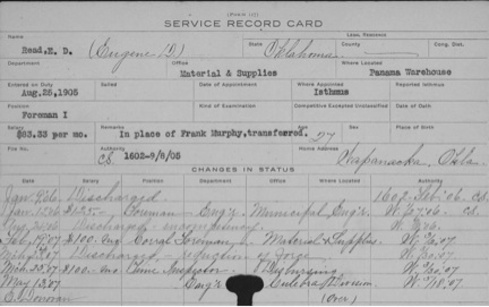 (FORM 117)
SERVICE RECORD CARD
Name
Read, E. D. (Eugene D.)
State Oklahoma
LEGAL RESIDENCE
County
Cong. Dist.
Department
Office
Material & Supplies
Where Located
Panama Warehouse
Entered on Duty
Aug. 26, 1905
Sailed
Date of Appointment
Where Appointed
Isthmus
Reported Isthmus
Position
Foreman I
Kind of Examination
Competitive Excepted Unclassified
Date of Oath
Salary
$83.33 per mo.
Remarks
In place of Frank Murphy, transferred.
Age
27
Sex
Place of Birth
File No.
Authority
C.S. 1602-9/8/05
Home Address
Wapanucka, Okla.
CHANGES IN STATUS
Date Salary Position Department Office Where Located Authority
Discharged 1602 '06 C.S.
$125 - Foreman - Eng'r. Municipal Eng'r.
Discharged
'07 $100 Corral Foreman, Material & Supplies
Discharged, reduction of force
Mch. 25, '07 $100 Time Inspector Disbursing
May 13, '07 Eng'r. Culebra Division
(Over)